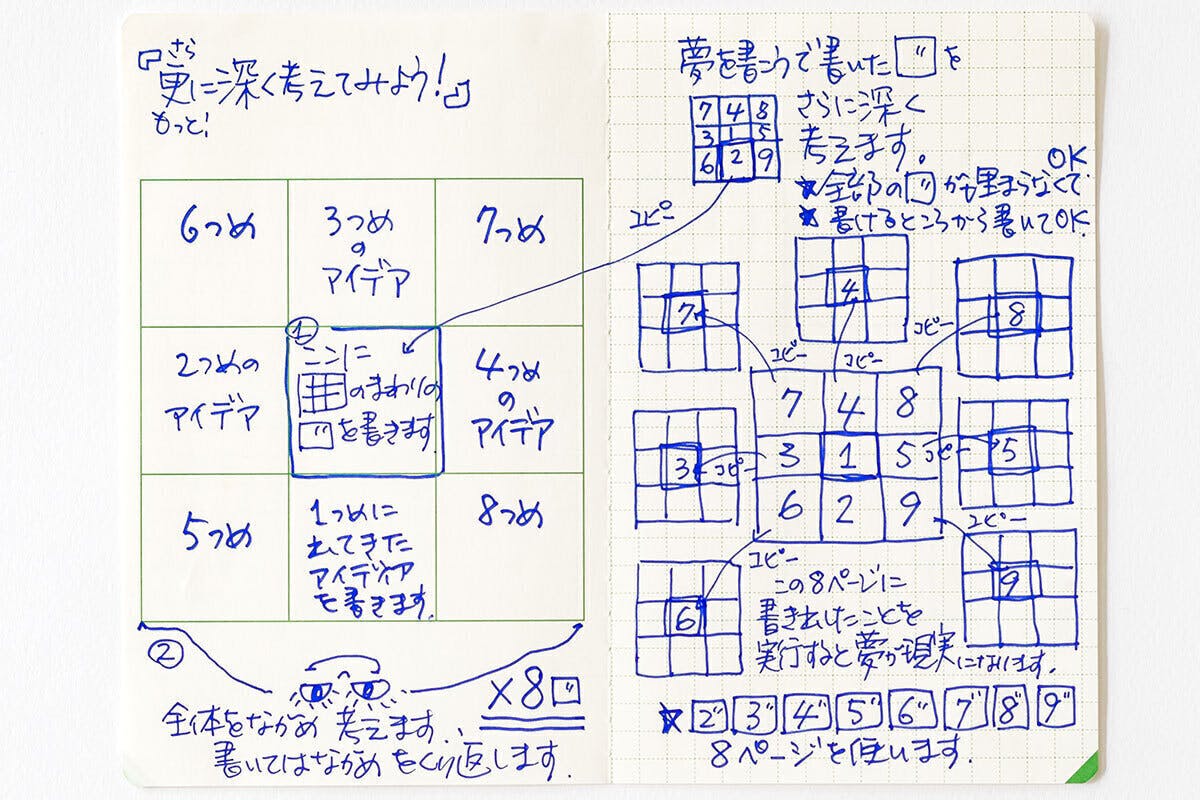 『更に深く考えてみよう!』
さら
もっと!
6つめ
3つめ
の
アイデア
7つめ
2つめの
アイデア
①
ここに
のまわりの
□"を書きます
4つめ
の
アイデア
5つめ
1つめに
出てきた
アイディア
を書きます.
8つめ
②
×8□"
全体をながめ 考えます..
書いてはながめをくり返します.
夢を書こうで書いた□"を
さらに深く
考えます。
7 4 8
3 1 5
6 2 9
コピー
★全部の□"が埋まらなくてOK
★書けるところから書いてOK.
7
4
8
コピー
コピー
コピー
7 4 8
3 1 5
6 2 9
3
コピー
コピー
5
6
コピー
コピー
9
この8ページに
書き出したことを
実行すると夢が現実になります.
★2" 3" 4" 5" 6" 7" 8" 9"
8ページを使います.